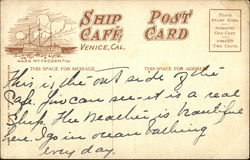 SHIP CAFÉ
VENICE, CAL.
POST CARD
PLACE
STAMP HERE
DOMESTIC
ONE CENT
FOREIGN
TWO CENTS
THIS SPACE FOR MESSAGE
THIS SPACE FOR ADDRESS
This is the out side of the
Cafe. You can see it is a real
Ship. The weather is beautiful
here. I go in ocean bathing
every day.